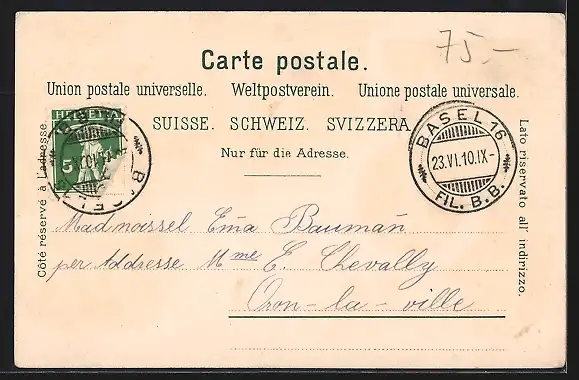 75.-
Carte postale.
Union postale universelle. Weltpostverein. Unione postale universale.
SUISSE. SCHWEIZ. SVIZZERA
Nur für die Adresse.
Côté réservé à l'adresse.
Lato riservato all' indirizzo.
HELVETIA
5
BASEL
BASEL 16
23.VI.10.IX-
FIL. B.B.
Madmoissel Em̄a Bauman̄
per Addresse Mme E. Chevally
Oron-la-ville